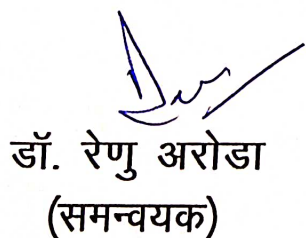 डॉ. रेणु अरोडा
(समन्वयक)